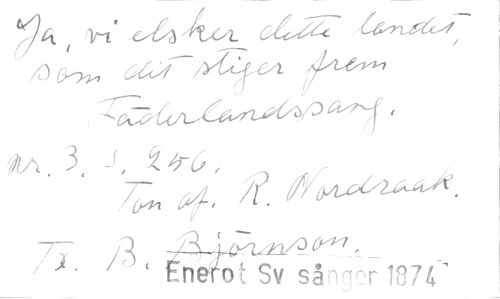 Ja, vi elsker dette landet,
som dit stiger frem
Fäderlandssang.
nr. 3. s. 256.
Ton af. R. Nordraak.
Tx. B. Björnson.
Enerot Sv sånger 1874